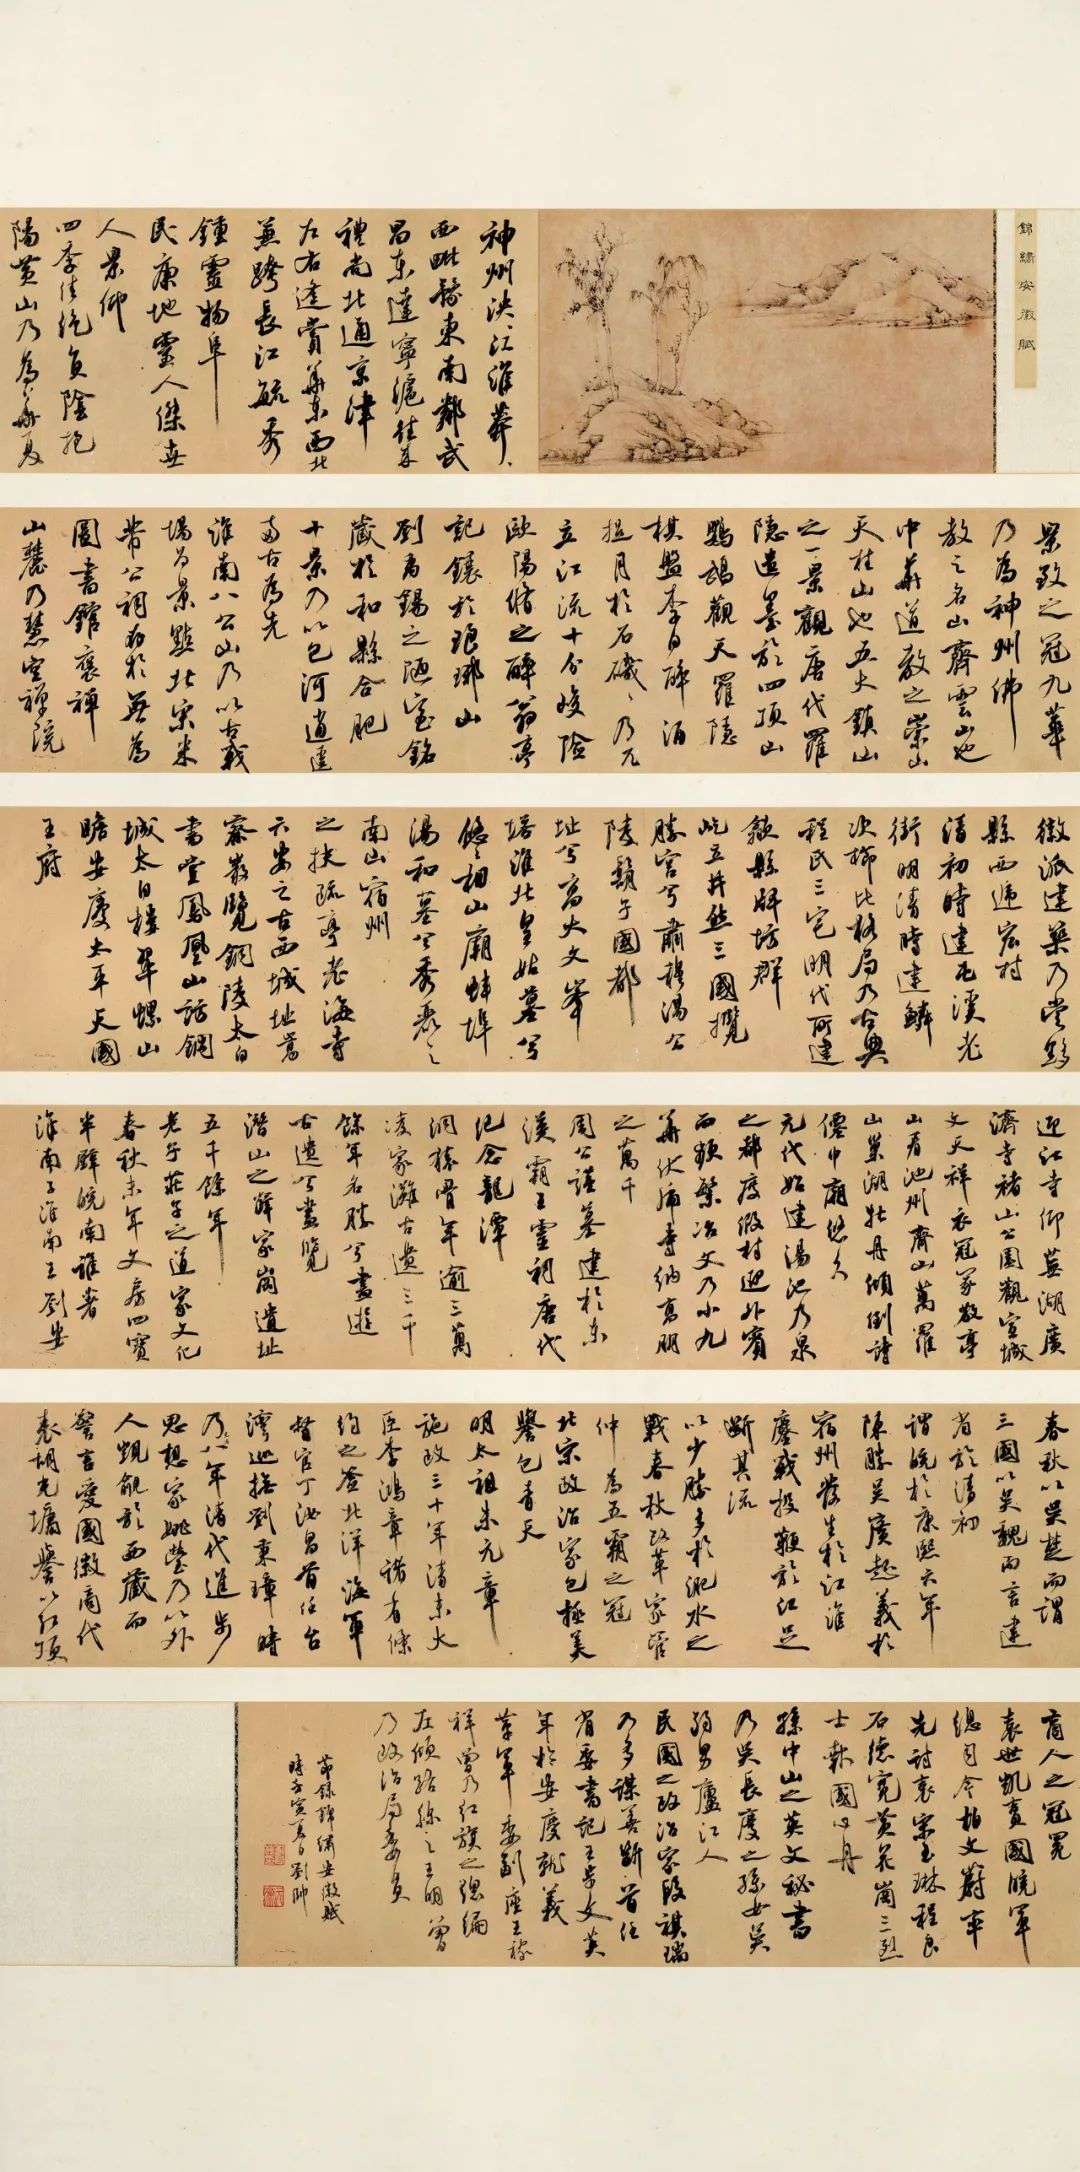 錦繡安徽賦
神州泱泱江淮莽莽
西毗豫東南鄰武
昌東達寧滬
禮尚北通京津
左右逢賞華東西北
兼跨長江毓秀
鍾靈物阜
民康地靈人傑
人景仰
四季佳絕負陰抱
陽黃山乃為華夏
景致之冠九華
乃為神州佛
教之名山齊雲山也
中華道教之崇山
天柱山也五大鎮山
之一景觀唐代羅
隱遺墨於四頂山
鸚鵡觀天羅隱
棋盤李白醉酒
捉月於石磯磯乃兀
立江流十分峻險
歐陽脩之醉翁亭
記鑲於琅琊山
劉禹錫之陋室銘
藏於和縣合肥
十景乃以包河逍遙
古為先
淮南八公山乃以古戰
場為景點北宋米
芾公祠於無為
圖書館褒禪
山麓乃慧空禪院
徽派建築乃當黟
縣西遞宏村
清初時建屯溪老
街明清時建鱗
次櫛比格局乃古典
程氏三宅明代所建
歙縣牌坊群
屹立井然三國攬
勝宮兮肅穆湯公
陵鬍子國都
址兮高大文峯
塔淮北皇姑墓兮
悠悠相山廟蚌埠
湯和墓兮秀裹之
南山宿州
之扶疏亭老海寺
六安之古西城址萬
寨嚴覽銅陵太白
書堂鳳凰山話銅
城太白樓翠螺山
瞻安慶太平天國
王府
迎江寺仰蕪湖廣
濟寺褚山公園觀宣城
文天祥衣冠冢敬亭
山看池州齊山萬羅
山巢湖牡丹傾倒詩
僊中廟悠久
元代始建湯池乃泉
之都度假村迎外賓
而頻繁冶父乃小九
華伏虎寺納高朋
之萬千
周公瑾墓建於東
漢霸王靈祠唐代
紀念龍潭
洞猿骨年逾三萬
凌家灘古遺三千
餘年名勝兮盡遊
古遺兮盡覽
潛山之薛家崗遺址
五千餘年
老子莊子之道家文化
春秋末年文房四寶
半壁皖南誰著
淮南子淮南王劉安
春秋以吳楚而謂
三國以吳魏而言建
省於清初
謂皖於康熙六年
陳勝吳廣起義於
宿州發生於江淮
鏖戰投鞭於江足
斷其流
以少勝多於淝水之
戰春秋改革家管
仲為五霸之冠
北宋政治家包拯美
譽包青天
明太祖朱元章
施政三十年清末大
臣李鴻章諸者條
約之簽北洋海軍
督官丁汝昌首任台
灣巡撫劉秉璋時
乃八年清代進步
思想家姚瑩乃以外
人覬覦於西藏而
警言愛國徽商代
表胡光墉譽以紅頂
商人之冠冕
袁世凱賣國皖軍
總司令柏文蔚率
先討袁宋玉琳程良
石德寬黃花崗三烈
士赫國心丹
孫中山之英文秘書
乃吳長慶之孫女吳
弱男廬江人
民國之政治家段祺瑞
乃多謀善斷首任
省委書記王步文英
年於安慶就義
革軍委副座王稼
祥曾乃紅旗之總編
左傾路線之王明曾
乃政治局委員
節錄錦繡安徽賦
時壬寅夏日劉帥